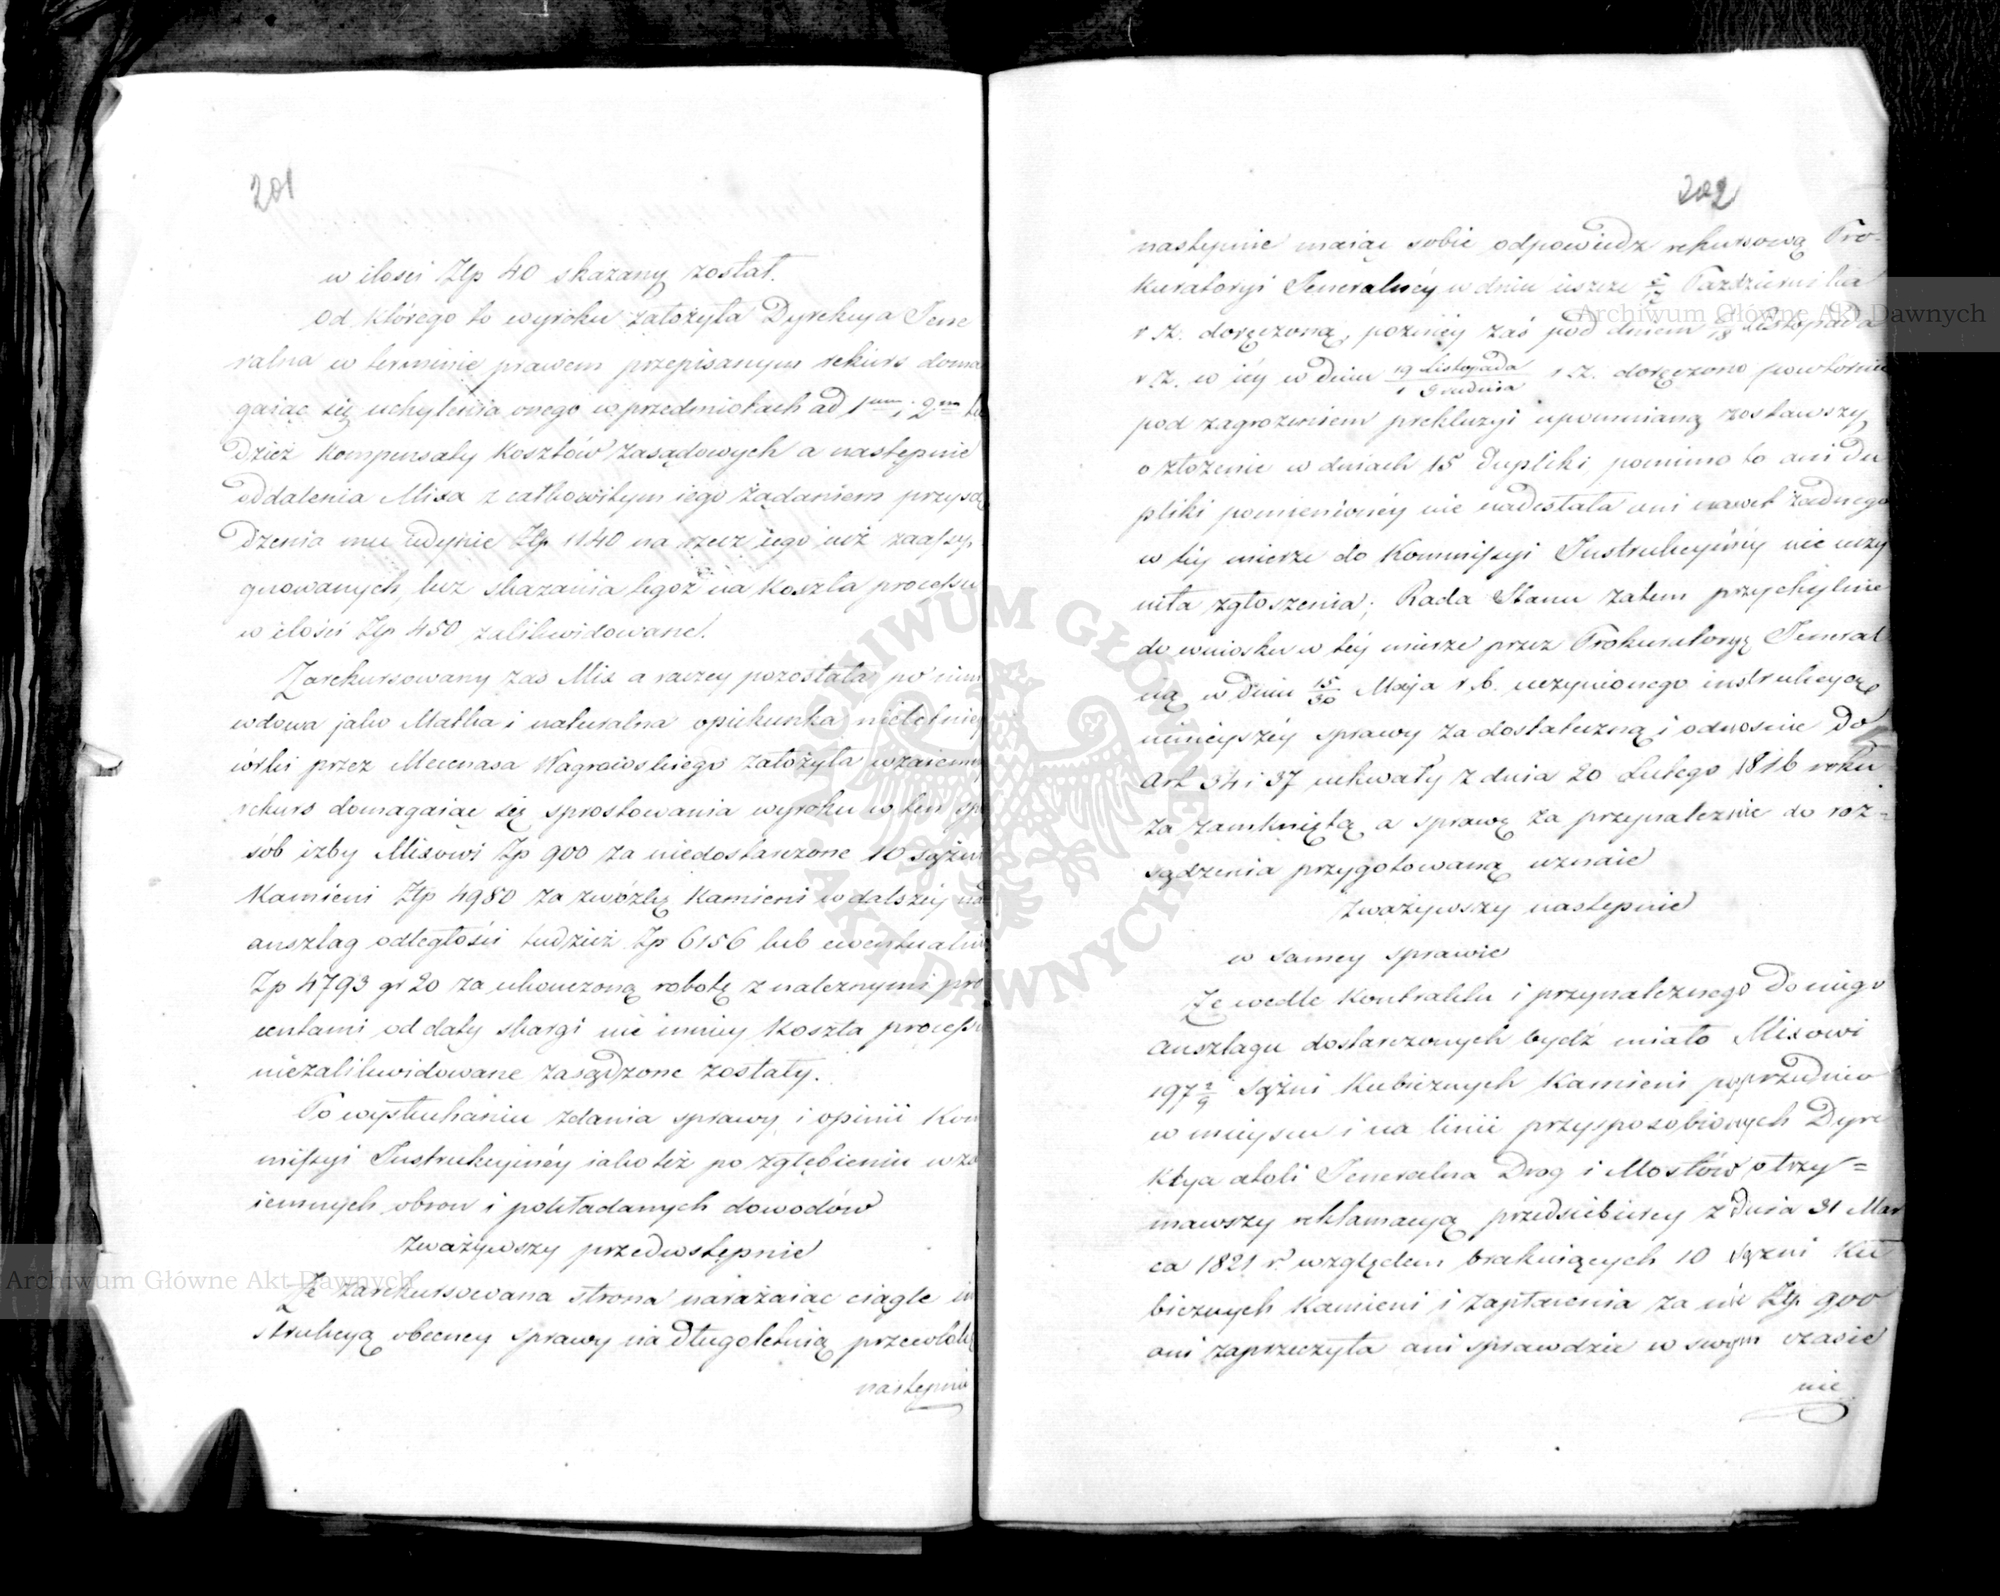 201
w ilości Złp 40 skazany został.
Od którego to wyroku założyła Dyrekcya Jene
ralna w terminie prawem przepisanym rekurs doma
gaiąc się uchylenia onego w przedmiotach ad 1um i 2um tu
dzież kompensaty kosztów zasądowych a następnie
oddalenia Mixa z całkowitym iego żądaniem przysą
dzenia mu iedynie Złp 1140 na rzecz iego iuż zaassy
gnowanych, tuż skazania tegoż na koszta processu
w ilości Złp 450 zalikwidowane.
Zarekursowany zaś Mix a raczey pozostała po nim
wdowa jako Matka i naturalna opiekunka nieletniey
córki przez Mecenasa Wagrowskiego założyła wzaiemny
rekurs domagaiąc się sprostowania wyroku w ten spo
sób iżby Mixowi Zp 900 za niedostarczone 10 sążni
Kamieni Złp 4980 za zwózkę Kamieni w dalszéy nad
anszlag odległości tudzież Zp 6156 lub ewentualnie
Zp 4793 gr 20 za ukończoną robotę z należnymi pro
centami od daty skargi nie mniey koszta processu
niezalikwidowane zasądzone zostały.
Po wysłuchaniu zdania sprawy i opinii Kom
missyi Instrukcyinéy iako też po zgłębieniu wza
iemnych obron i pokładanych dowodów
zważywszy przedwstępnie
Że zarekursowana strona narażaiąc ciągle in
strukcyą obecney sprawy na długoletnią przewlokę
następnie
202
następnie maiąc sobie odpowiedz rekursową Pro-
kuratoryi Jeneralnéy w dniu ieszcze 5/17 Października
r. z. doręczoną, poznéy zaś pod dniem 6/18 Listopada
r. z. w iéy w dniu 19 Listopada / 1 Grudnia r. z. doręczono powtórnie
pod zagrożeniem prekluzyi upomnianą zostawszy
o złożenie w dniach 15 dupliki pomimo to ani du
pliki pomienionéy nie nadesłała ani nawet żadnego
w téy mierze do Kommissyi Instrukcyinéy nie uczy
niła zgłoszenia; Rada Stanu zatem przychylnie
do wniosku w téy mierze przez Prokuratoryą Jeneral
ną w dniu 15/30 Maja r. b. uczynionego instrukcyą
ninieyszéy sprawy za dostateczną i odnosnie do
Art 34 i 37 uchwały z dnia 20 Lutego 1816 roku
za zamkniętą a sprawę za przynależnie do roz=
sądzenia przygotowaną uznaie
Zważywszy następnie
w samey sprawie
Że wedle Kontraktu i przynależnego do niego
Anszlagu dostarczonych bydź miało Mixowi
197 2/9 Sążni Kubicznych Kamieni poprzednio
w mieyscu i na linii przysposobionych Dyre
kcya atoli Jeneralna Drog i Mostów otrzy=
mawszy reklamacyą przedsiebiercy z dnia 31 Mar
ca 1821 r. względem brakuiących 10 sążni Ku
bicznych Kamieni i zapłacenia za nie Złp. 900
ani zaprzeczyła ani sprawdzić w swym czasie
nie
Archiwum Główne Akt Dawnych
Archiwum Główne Akt Dawnych
ARCHIWUM GŁÓWNE AKT DAWNYCH